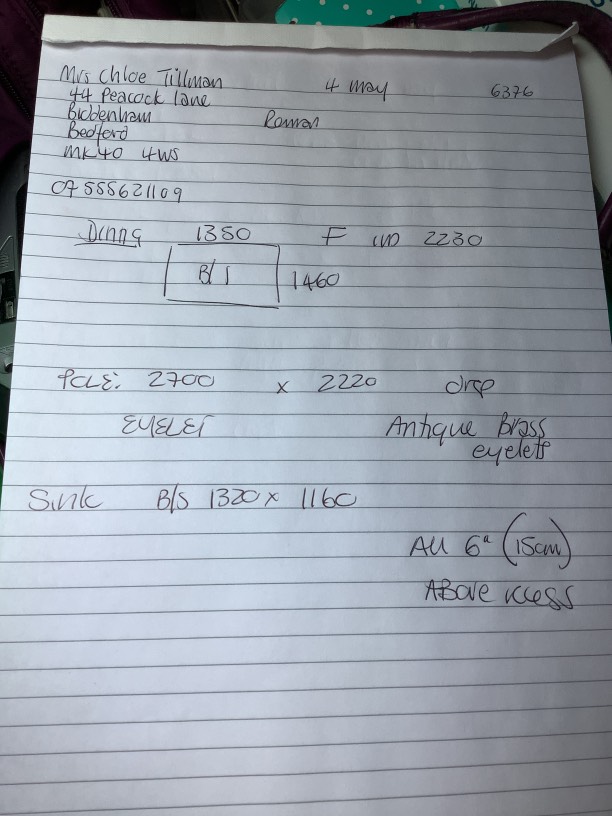 Mrs Chloe Tillman 4 May 6376
44 Peacock Lane
Biddenham Roman
Bedford
MK40 4WS
07555621109
Dinng 1380 F 2230
B/S 1460
POLE: 2700 x 2220 drop
EYELET Antique Brass
eyelets
Sink B/S 1320 x 1160
All 6" (15cm)
ABove recess